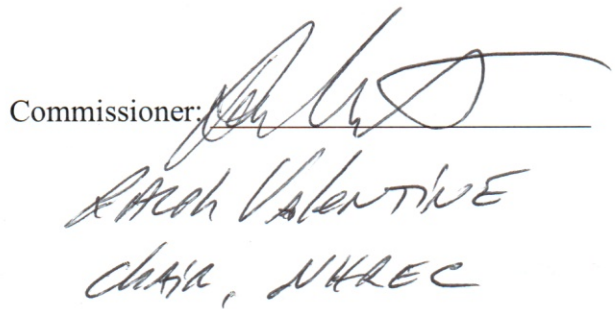 Commissioner:
Ralph Valentine
Chair, NHREC